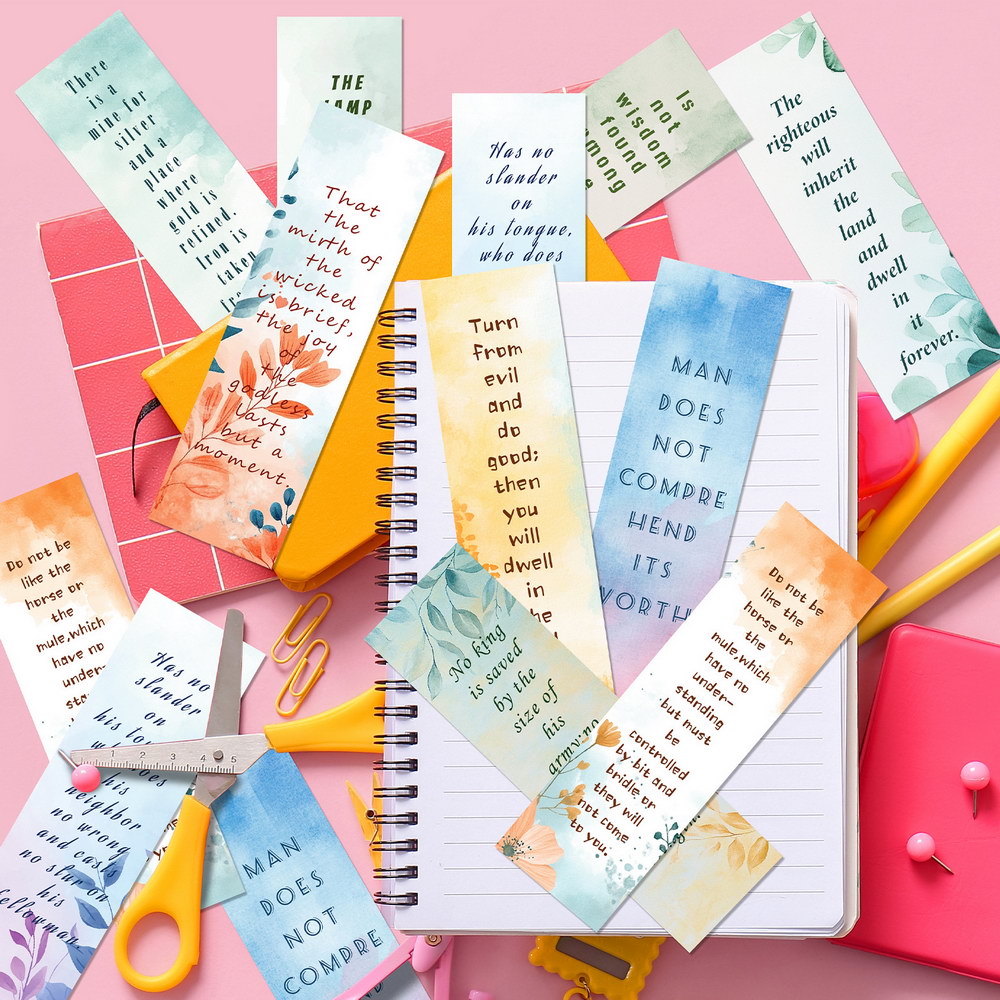 There
is a
mine for
silver
and a
place
where
gold is
refined.
Iron is
taken
THE
That
the
mirth of
the
wicked
is brief,
the joy
of
the
godless
lasts
but a
moment.
Has no
slander
on
his tongue,
who does
Is
not
wisdom
found
among
The
righteous
will
inherit
the
land
and
dwell
in
it
forever.
Turn
from
evil
and
do
good;
then
you
will
dwell
in
MAN
DOES
NOT
COMPRE
HEND
ITS
WORTH
Do not be
like the
horse or
the
mule,which
have no
under-
Has no
slander
on
his
neighbor
no wrong
and casts
no slur on
his
fellowman.
MAN
DOES
NOT
COMPRE
No king
is saved
by the
size of
his
army;no
Do not be
like the
horse or
the
mule,which
have no
under-
standing
but must
be
controlled
by bit and
bridle or
they will
not come
to you.
1 2 3 4 5